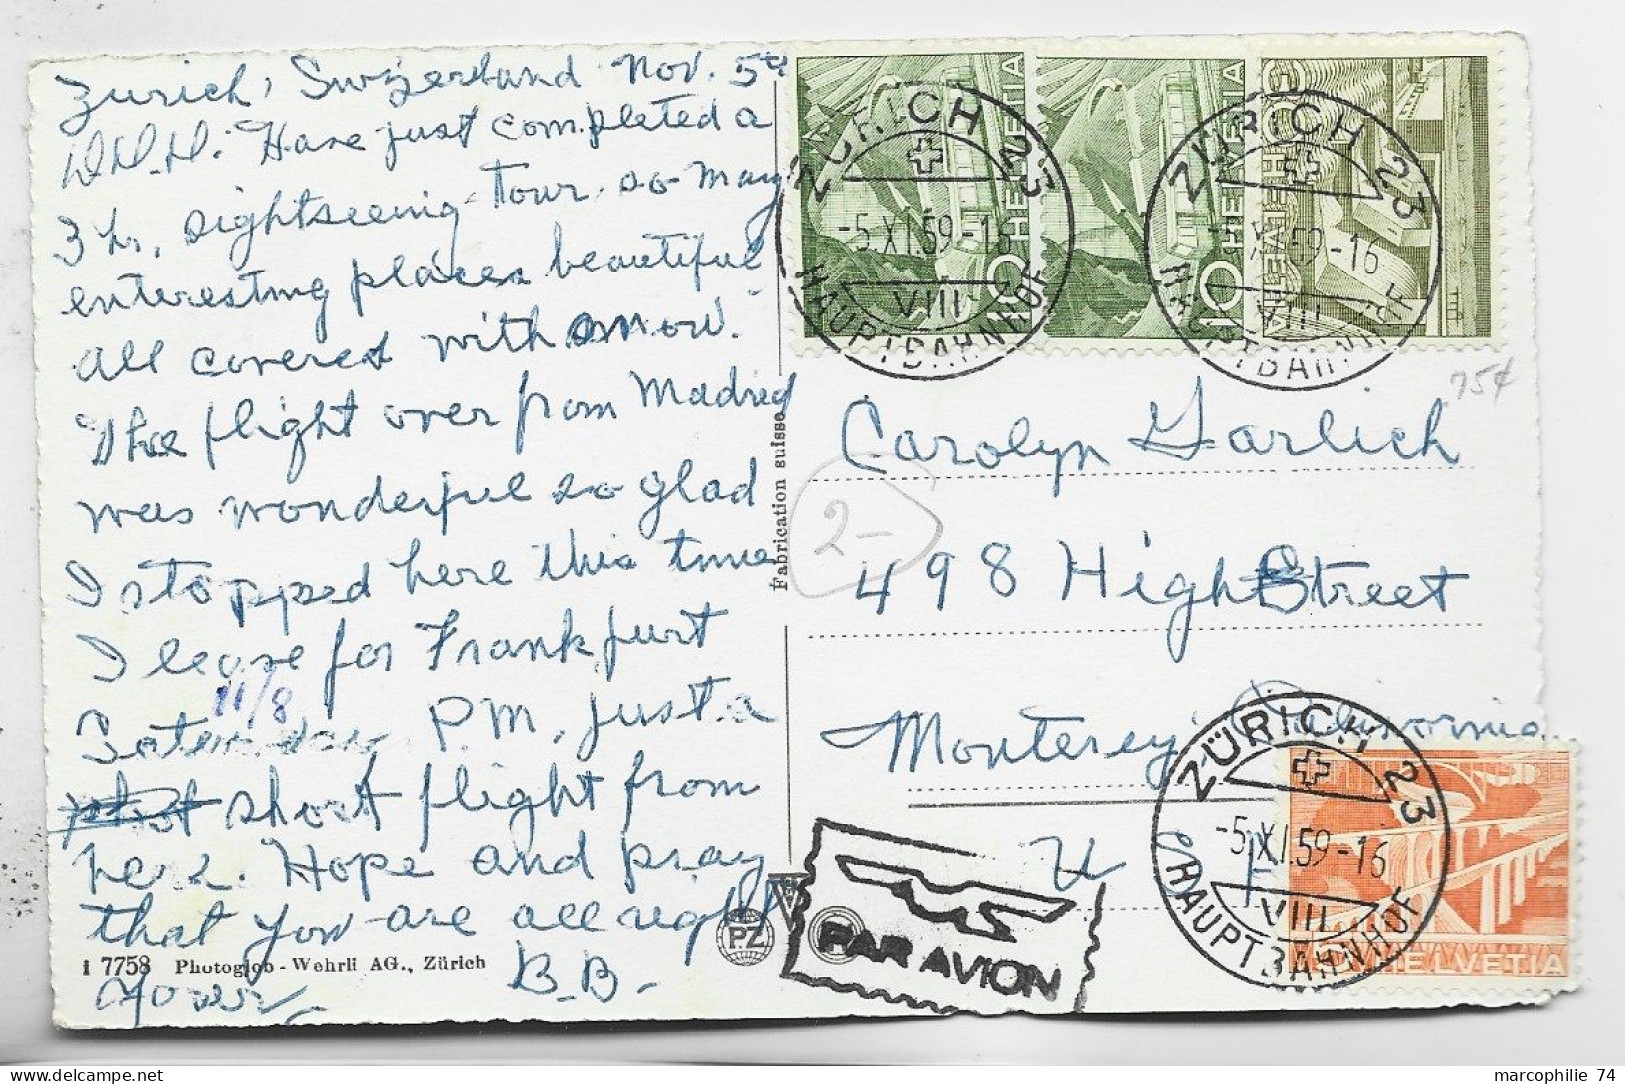 Zurich, Swizerland Nov. 5th
D.H.H. Have just completed a
3 hr. sightseeing tour so many
interesting places beautiful
all covered with snow.
The flight over from Madrid
was wonderful so glad
I stopped here this time
I leave for Frankfurt
11/8
Saturday P.M. just a
short flight from
here. Hope and pray
that you are all right
Your
B.B.
1 7758 Photoglob-Wehrli AG., Zürich
Fabrication suisse
PZ
HELVETIA 10
HELVETIA 10
HELVETIA
ZÜRICH 23
-5.XI.59-16
VIII
HAUPTBAHNHOF
ZÜRICH 23
-5.XI.59-16
VIII
HAUPTBAHNHOF
75¢
2-
Carolyn Garlich
498 High Street
Monterey California
U S
PAR AVION
ZÜRICH 23
-5.XI.59-16
VIII
HAUPTBAHNHOF
HELVETIA
marcophilie 74